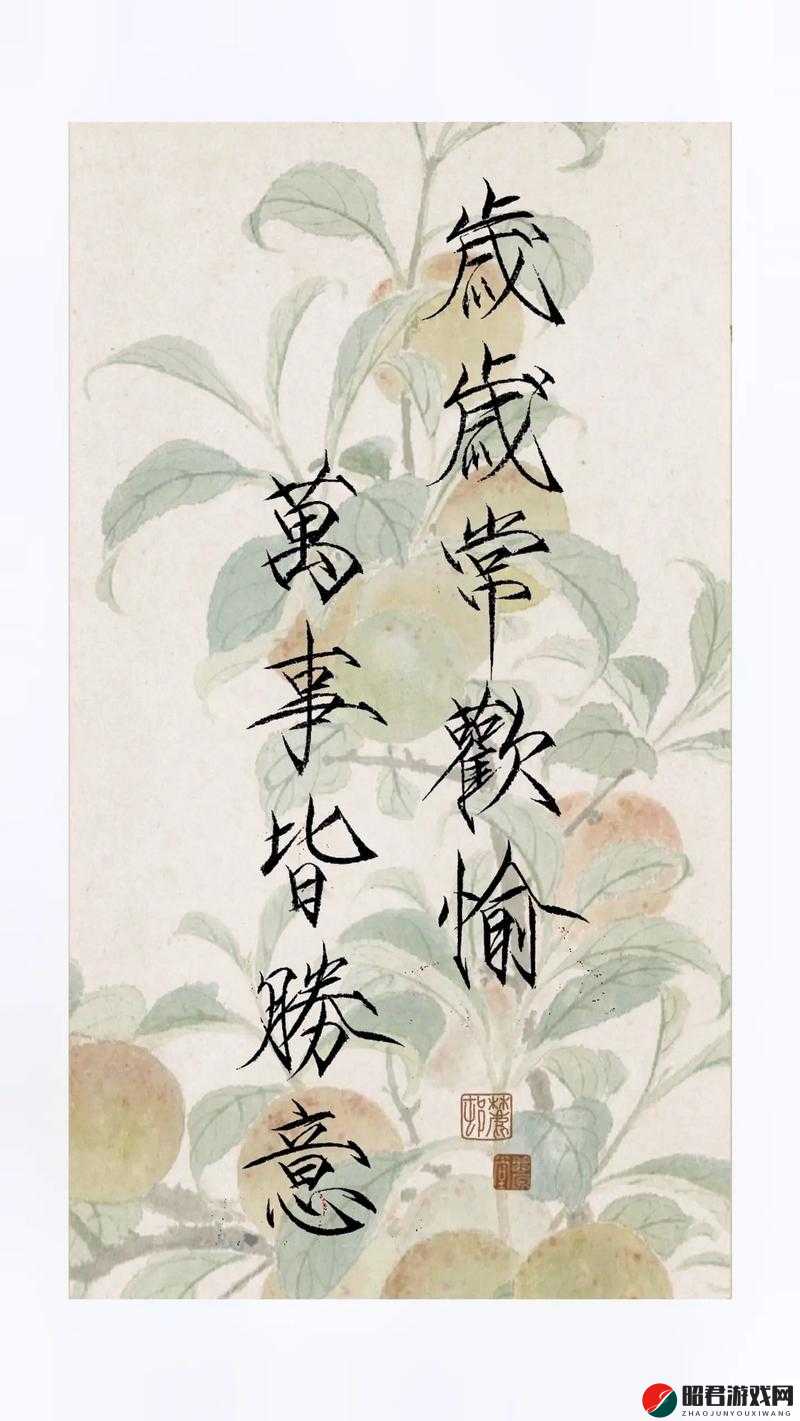 歲歲常歡愉
萬事皆勝意
昭君游戏网
ZHAOJUNYOUXIWANG